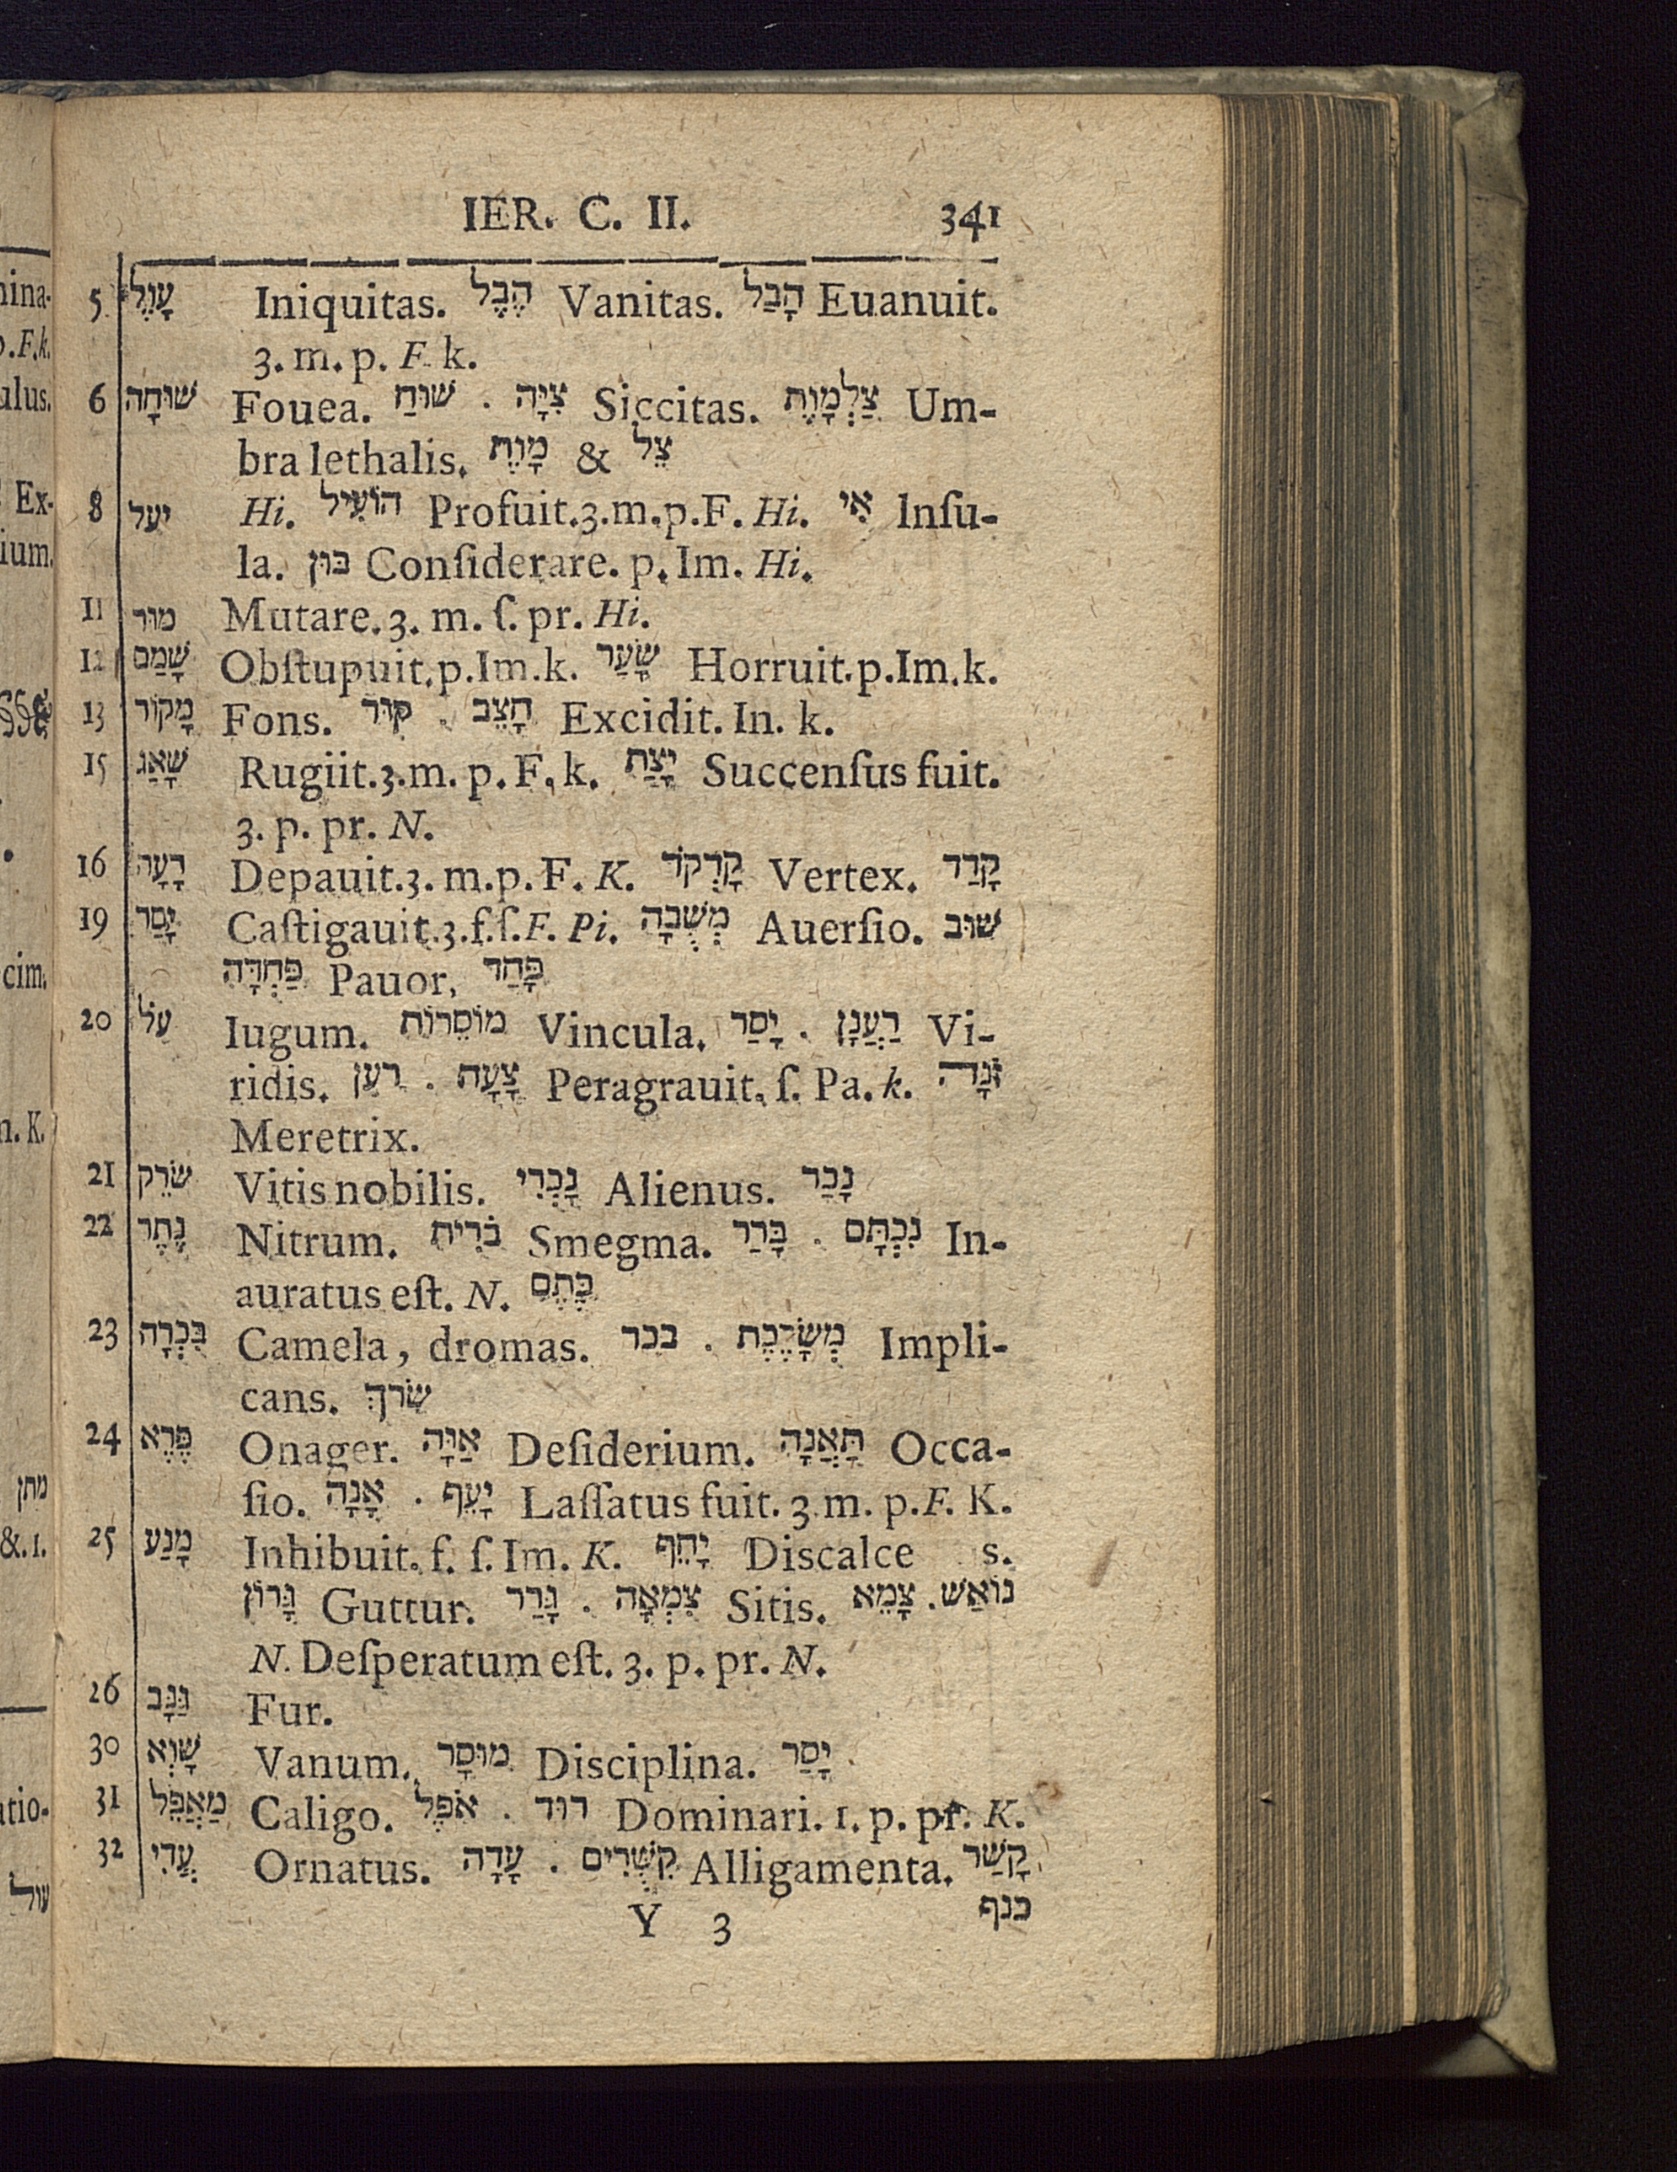 IER. C. II. 341
5 עָוֶל Iniquitas. הֶבֶל Vanitas. הָבַל Euanuit.
3. m. p. F. k.
6 שׁוּחָה Fouea. שׁוּחַ . צִיָּה Siccitas. צַלְמָוֶת Um-
bra lethalis. מָוֶת & צֵל
8 יעל Hi. הוֹעִיל Profuit.3.m.p.F. Hi. אִי Inſu-
la. בּוּן Conſiderare. p. Im. Hi.
11 מוּר Mutare. 3. m. ſ. pr. Hi.
12 שָׁמַם Obſtupuit.p.Im.k. שָׂעַר Horruit.p.Im.k.
13 מָקוֹר Fons. קוּר . חָצֵב Excidit. In. k.
15 שָׁאַג Rugiit.3.m. p. F. k. יָצַת Succenſus fuit.
3. p. pr. N.
16 רָעָה Depauit.3. m.p. F. K. קָדְקֹד Vertex. קָדַד
19 יָסַר Caſtigauit.3.f.ſ.F. Pi. מְשֻׁבָה Auerſio. שׁוּב
פַּחְדָּה Pauor, פָּחַד
20 עֹל Iugum. מוֹסֵרוֹת Vincula. יָסַר . רַעֲנָן Vi-
ridis. רען . צָעָה Peragrauit. ſ. Pa. k. זֹנָה
Meretrix.
21 שׂרֵק Vitis nobilis. נָכְרִי Alienus. נָכַר
22 נֶתֶר Nitrum. בֹּרִית Smegma. בָּרַר . נִכְתָּם In-
auratus eſt. N. כֶּתֶם
23 בִּכְרָה Camela, dromas. בכר . מְשָׂרֶכֶת Impli-
cans. שׂרך
24 פֶּרֶא Onager. אַוָּה Deſiderium. תַּאֲנָה Occa-
ſio. אָנָה . יָעֵף Laſſatus fuit. 3. m. p.F. K.
25 מָנַע Inhibuit. f. ſ. Im. K. יָחֵף Discalce s.
גָּרוֹן Guttur. גָּרַר . צִמְאָה Sitis. צָמֵא .נוֹאַשׁ
N. Deſperatum eſt. 3. p. pr. N.
26 גַּנָּב Fur.
30 שָׁוְא Vanum. מוּסָר Disciplina. יָסַר
31 מַאֲפֵל Caligo. אֹפֶל . רוּד Dominari. 1. p. pr. K.
32 עֲדִי Ornatus. עָדָה . קִשֻּׁרִים Alligamenta. קָשַׁר
Y 3 כנף